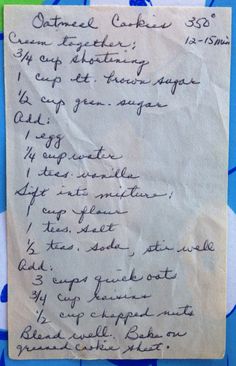 Oatmeal Cookies 350°
Cream together: 12-15 min
3/4 cup shortening
1 cup lt. brown sugar
1/2 cup gran. sugar
Add:
1 egg
1/4 cup water
1 teas. vanilla
Sift into mixture:
1 cup flour
1 teas. salt
1/2 teas. soda, stir well
Add:
3 cups quick oats
3/4 cup raisins
1/2 cup chopped nuts
Blend well. Bake on
greased cookie sheet.